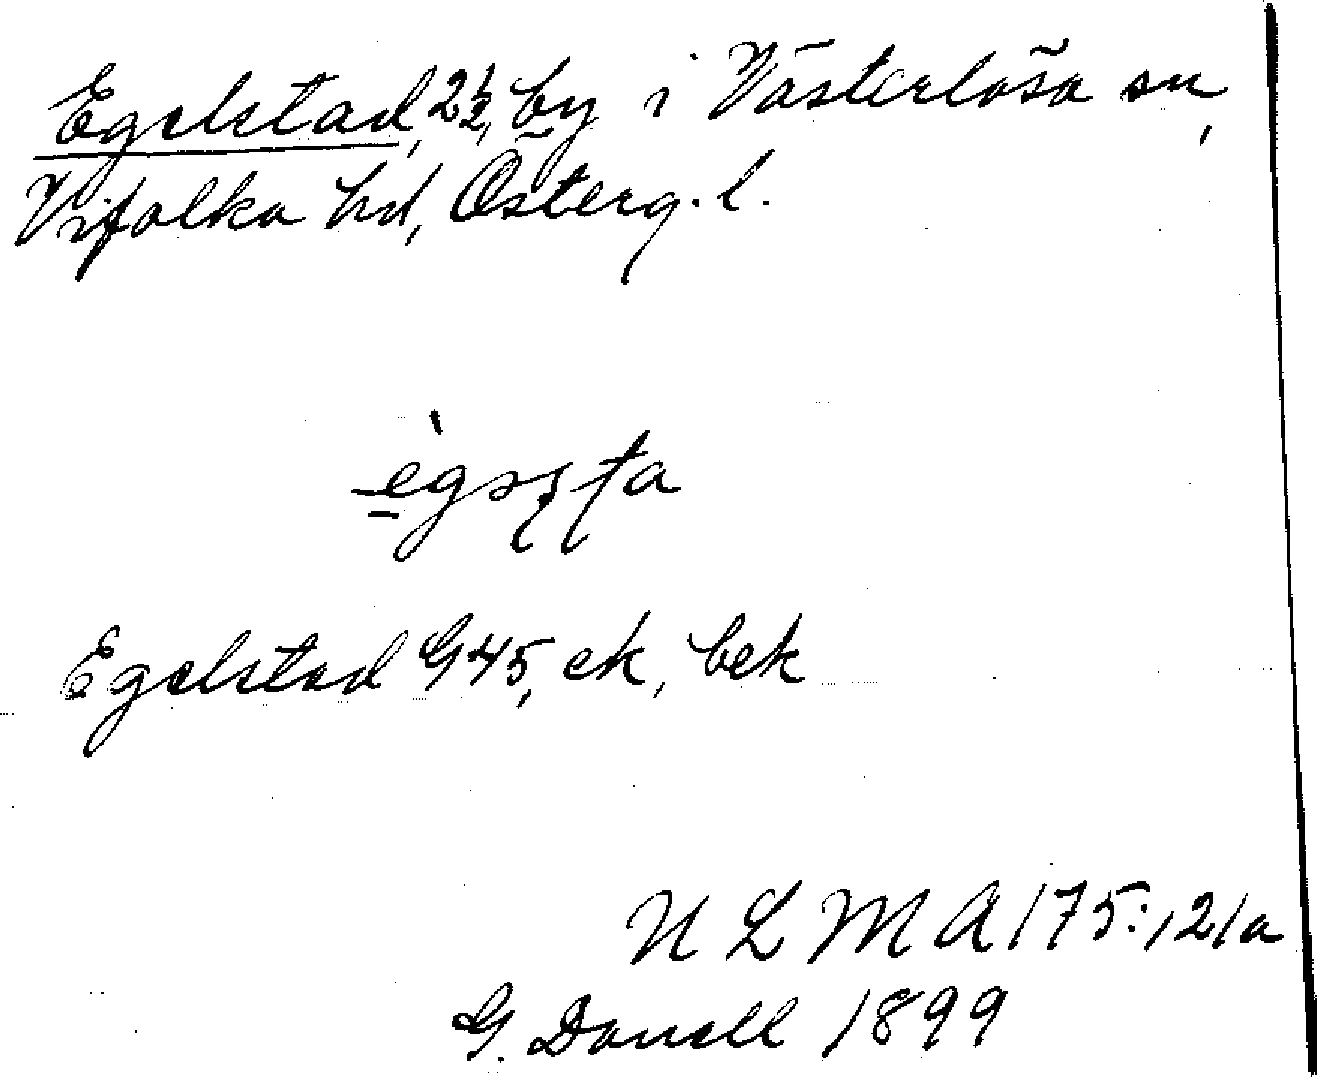 Egelstad, 2½, by i Västerlösa sn,
Vifolka hd, Österg. l.
Egelstad G 45, ek, bek
ULMA 175:121a
G. Danell 1899